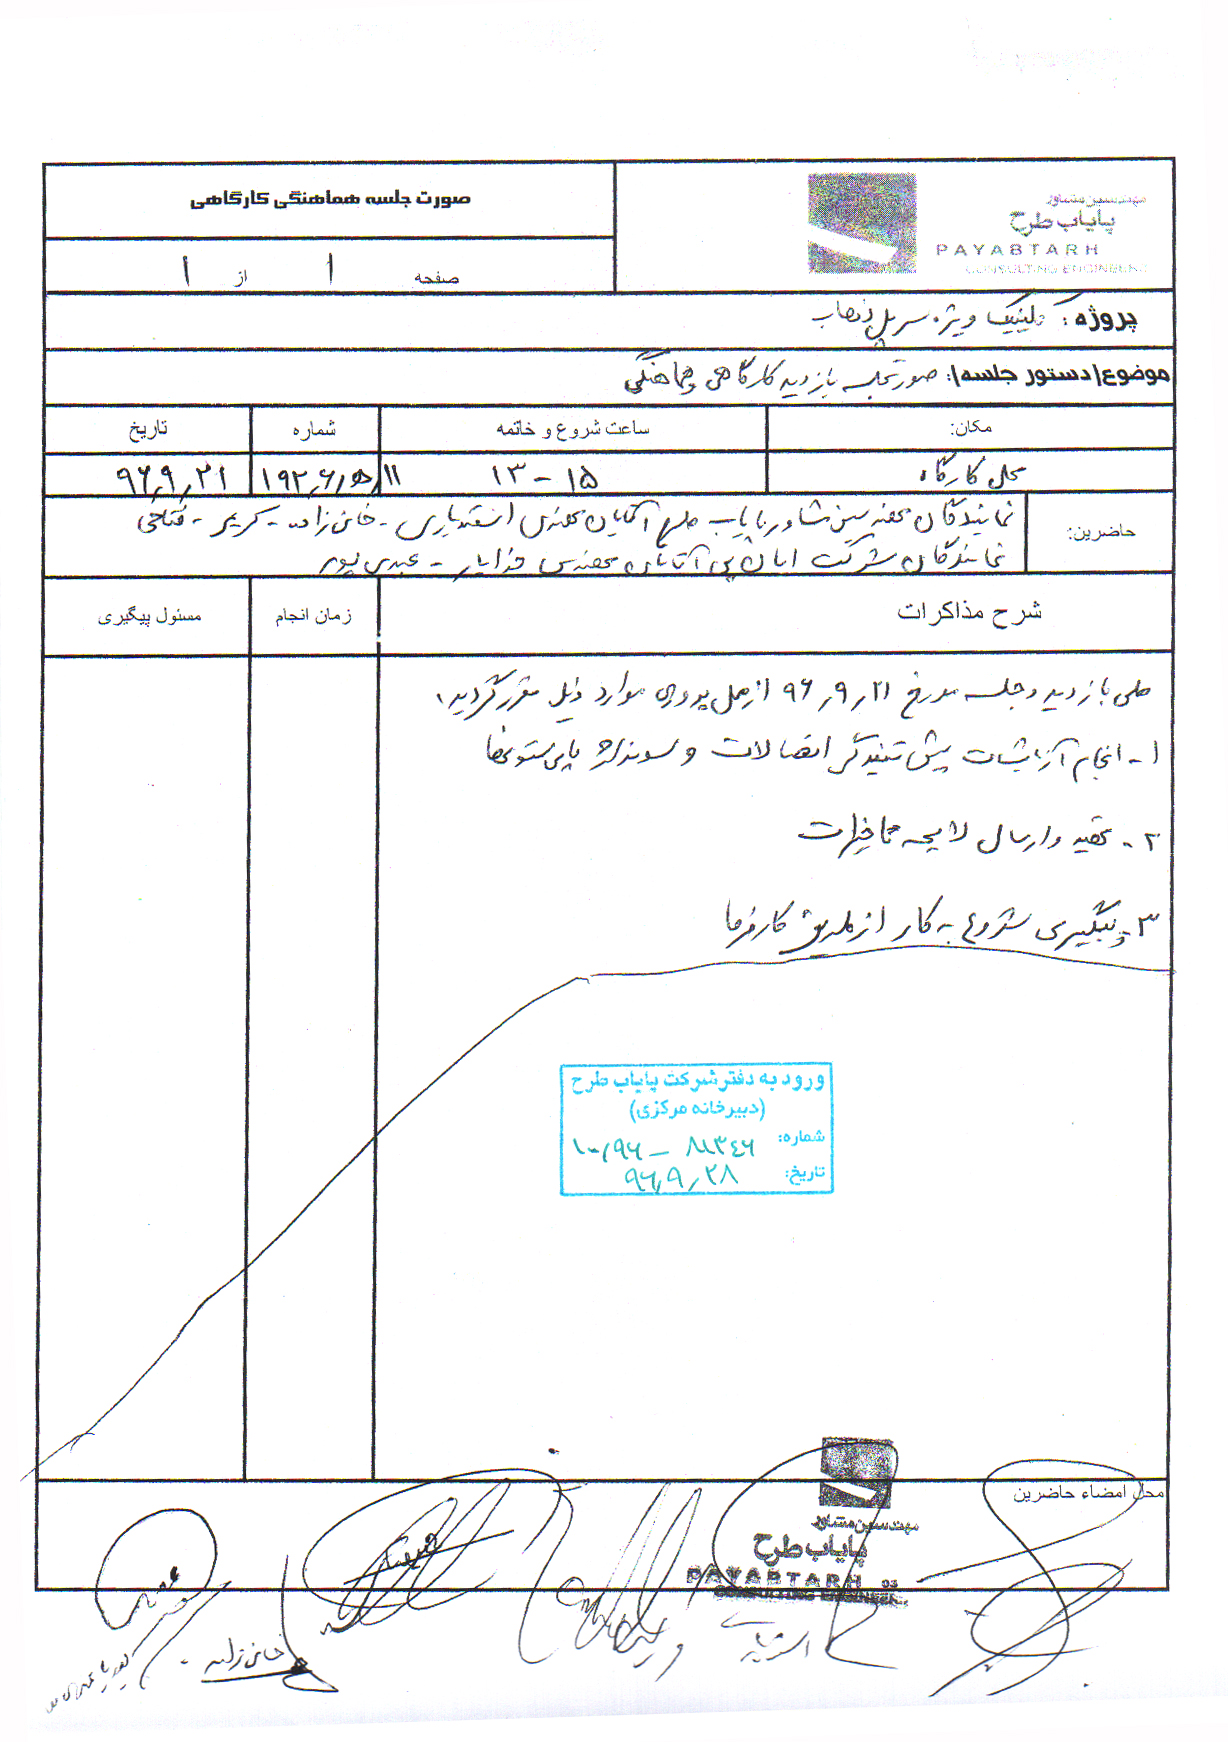 صورت جلسه هماهنگی کارگاهی
صفحه ۱ از ۱
مهندسین مشاور
پایاب طرح
PAYABTARH
CONSULTING ENGINEERS
پروژه: کلینیک ویژه سرپل ذهاب
موضوع(دستور جلسه): صورتجلسه بازدید کارگاهی و هماهنگی
مکان: ساعت شروع و خاتمه شماره تاریخ
محل کارگاه ۱۳ - ۱۵ ۹۶,۹,۲۱
حاضرین: نمایندگان مهندسین مشاور پایاب طرح آقایان مهندس اسفندیاری - خانی زاده - کریمی - فتاحی
نمایندگان شرکت پی آقایان مهندس خدایار - عبدی پور
شرح مذاکرات زمان انجام مسئول پیگیری
طی بازدید و جلسه مورخ ۹۶,۹,۲۱ از محل پروژه موارد ذیل مقرر گردید:
۱- انجام آزمایشات پیش تنیدگی اتصالات و سونداژ پای ستونها
۲- تهیه و ارسال لایحه مخاطرات
۳- پیگیری شروع به کار از طریق کارفرما
ورود به دفتر شرکت پایاب طرح
(دبیرخانه مرکزی)
شماره:
تاریخ: ۹۶,۹,۲۸
محل امضاء حاضرین
مهندسین مشاور
پایاب طرح
PAYABTARH 03
CONSULTING ENGINEERS
خانی زاده